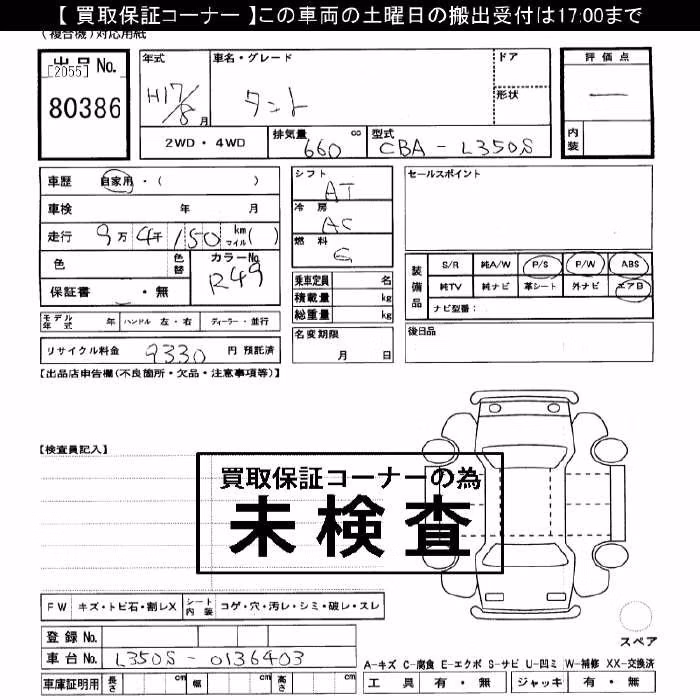 【 買取保証コーナー 】この車両の土曜日の搬出受付は17:00まで
(複合機)対応用紙
出品 No.
[2055]
80386
年式
H17/8 月
車名・グレード
タント
ドア
形状
評価点
—
内装
2WD・4WD
排気量 660 cc
型式 CBA - L350S
車歴 自家用・( )
車検 年 月
走行 9万 4千 150 km マイル( )
色 色替 カラーNo. R49
保証書 ・無
シフト AT
冷房 AC
燃料 G
乗車定員 名
積載量 kg
総重量 kg
セールスポイント
装備品
S/R 純A/W P/S P/W ABS
純TV 純ナビ 革シート 外ナビ エアB
ナビ型番:
モデル年式 年 ハンドル 左・右 ディーラー・並行
リサイクル料金 9330 円 預託済
名変期限 月 日
後日品
【出品店申告欄(不良箇所・欠品・注意事項等)】
【検査員記入】
買取保証コーナーの為
未検査
FW キズ・トビ石・割レX シート内装 コゲ・穴・汚レ・シミ・破レ・スレ
登録 No.
車台 No. L350S - 0136403
車庫証明用 長さ cm 幅 cm 高さ cm
スペア
A-キズ C-腐食 E-エクボ S-サビ U-凹ミ W-補修 XX-交換済
工具 有・無 ジャッキ 有・無